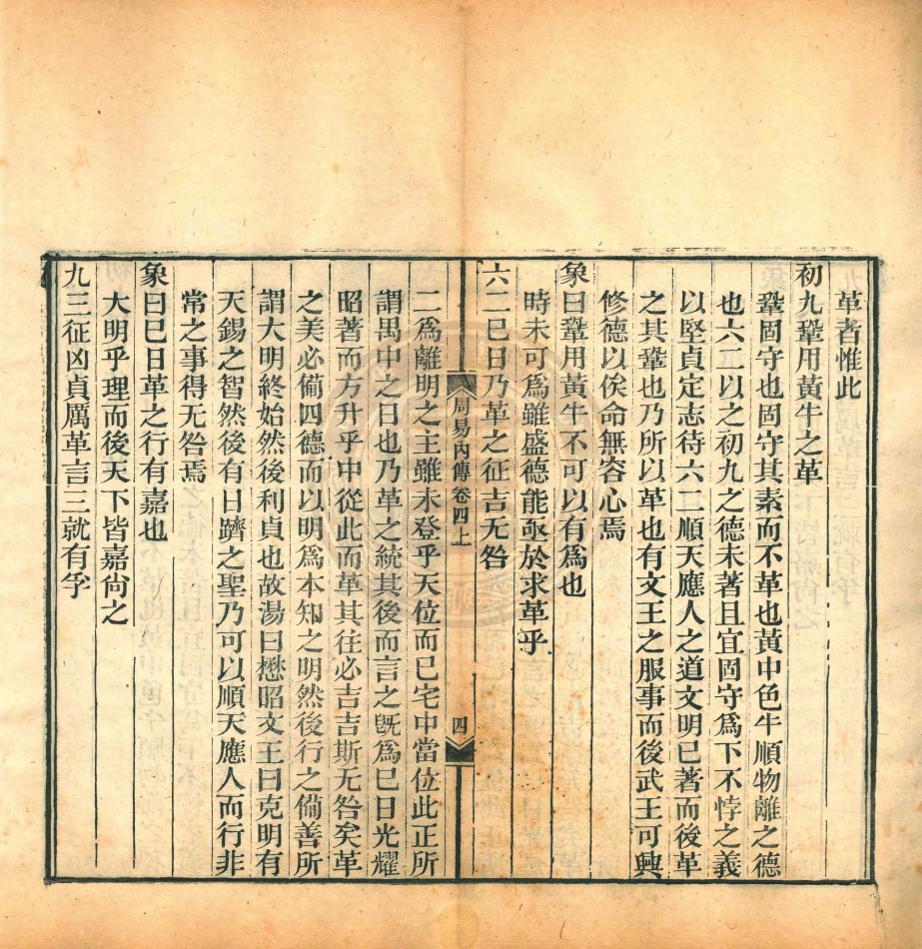 革者惟此
初九鞏用黃牛之革
鞏固守也固守其素而不革也黃中色牛順物離之德
也六二以之初九之德未著且宜固守爲下不悖之義
以堅貞定志待六二順天應人之道文明已著而後革
之其鞏也乃所以革也有文王之服事而後武王可興
修德以俟命無容心焉
象曰鞏用黃牛不可以有爲也
時未可爲雖盛德能亟於求革乎
六二巳日乃革之征吉无咎
周易內傳卷四上
四
二爲離明之主雖未登乎天位而已宅中當位此正所
謂禺中之日也乃革之統其後而言之旣爲巳日光耀
昭著而方升乎中從此而革其往必吉吉斯无咎矣革
之美必備四德而以明爲本知之明然後行之備善所
謂大明終始然後利貞也故湯曰懋昭文王曰克明有
天錫之智然後有日躋之聖乃可以順天應人而行非
常之事得无咎焉
象曰巳日革之行有嘉也
大明乎理而後天下皆嘉尙之
九三征凶貞厲革言三就有孚